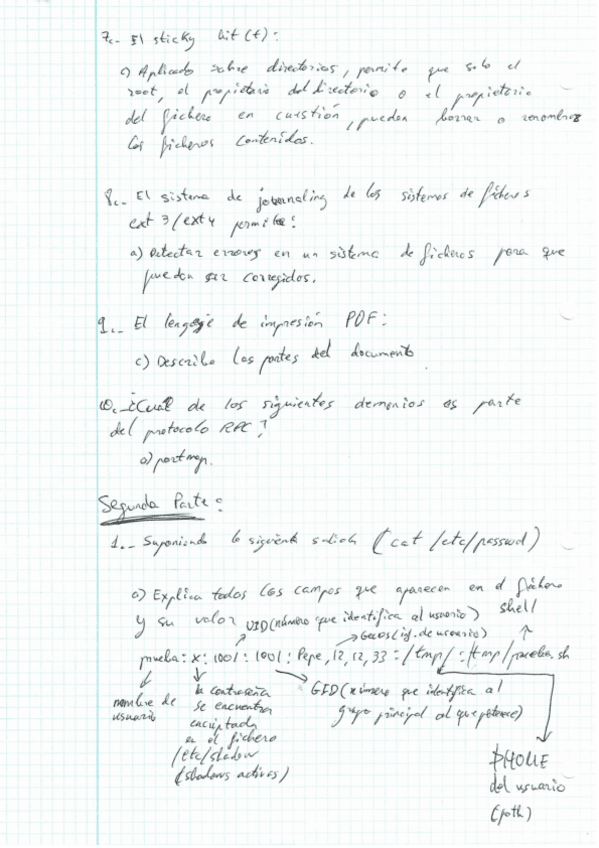 7.- El sticky bit (t):
c) Aplicado sobre directorios, permite que solo el
root, el propietario del directorio o el propietario
del fichero en cuestión, puedan borrar o renombrar
los ficheros contenidos.
8.- El sistema de journaling de los sistemas de ficheros
ext 3/ext4 permite:
a) Detectar errores en un sistema de ficheros para que
puedan ser corregidos.
9.- El lenguaje de impresión PDF:
c) Describe las partes del documento
10.- ¿Cual de los siguientes demonios es parte
del protocolo RPC?
a) portmap.
Segunda Parte:
1.- Suponiendo la siguiente salida (cat /etc/passwd)
a) Explica todos los campos que aparecen en el fichero
y su valor
UID (número que identifica al usuario)
shell
Gecos (if. de usuario)
prueba: x: 1001: 1001: Pepe, 12, 12, 33 :/tmp/ :/tmp/prueba.sh
nombre de
usuario
la contraseña
se encuentra
encriptada
en el fichero
/etc/shadow
(shadows activas)
GID (número que identifica al
grupo principal al que pertenece)
$HOME
del usuario
(path)